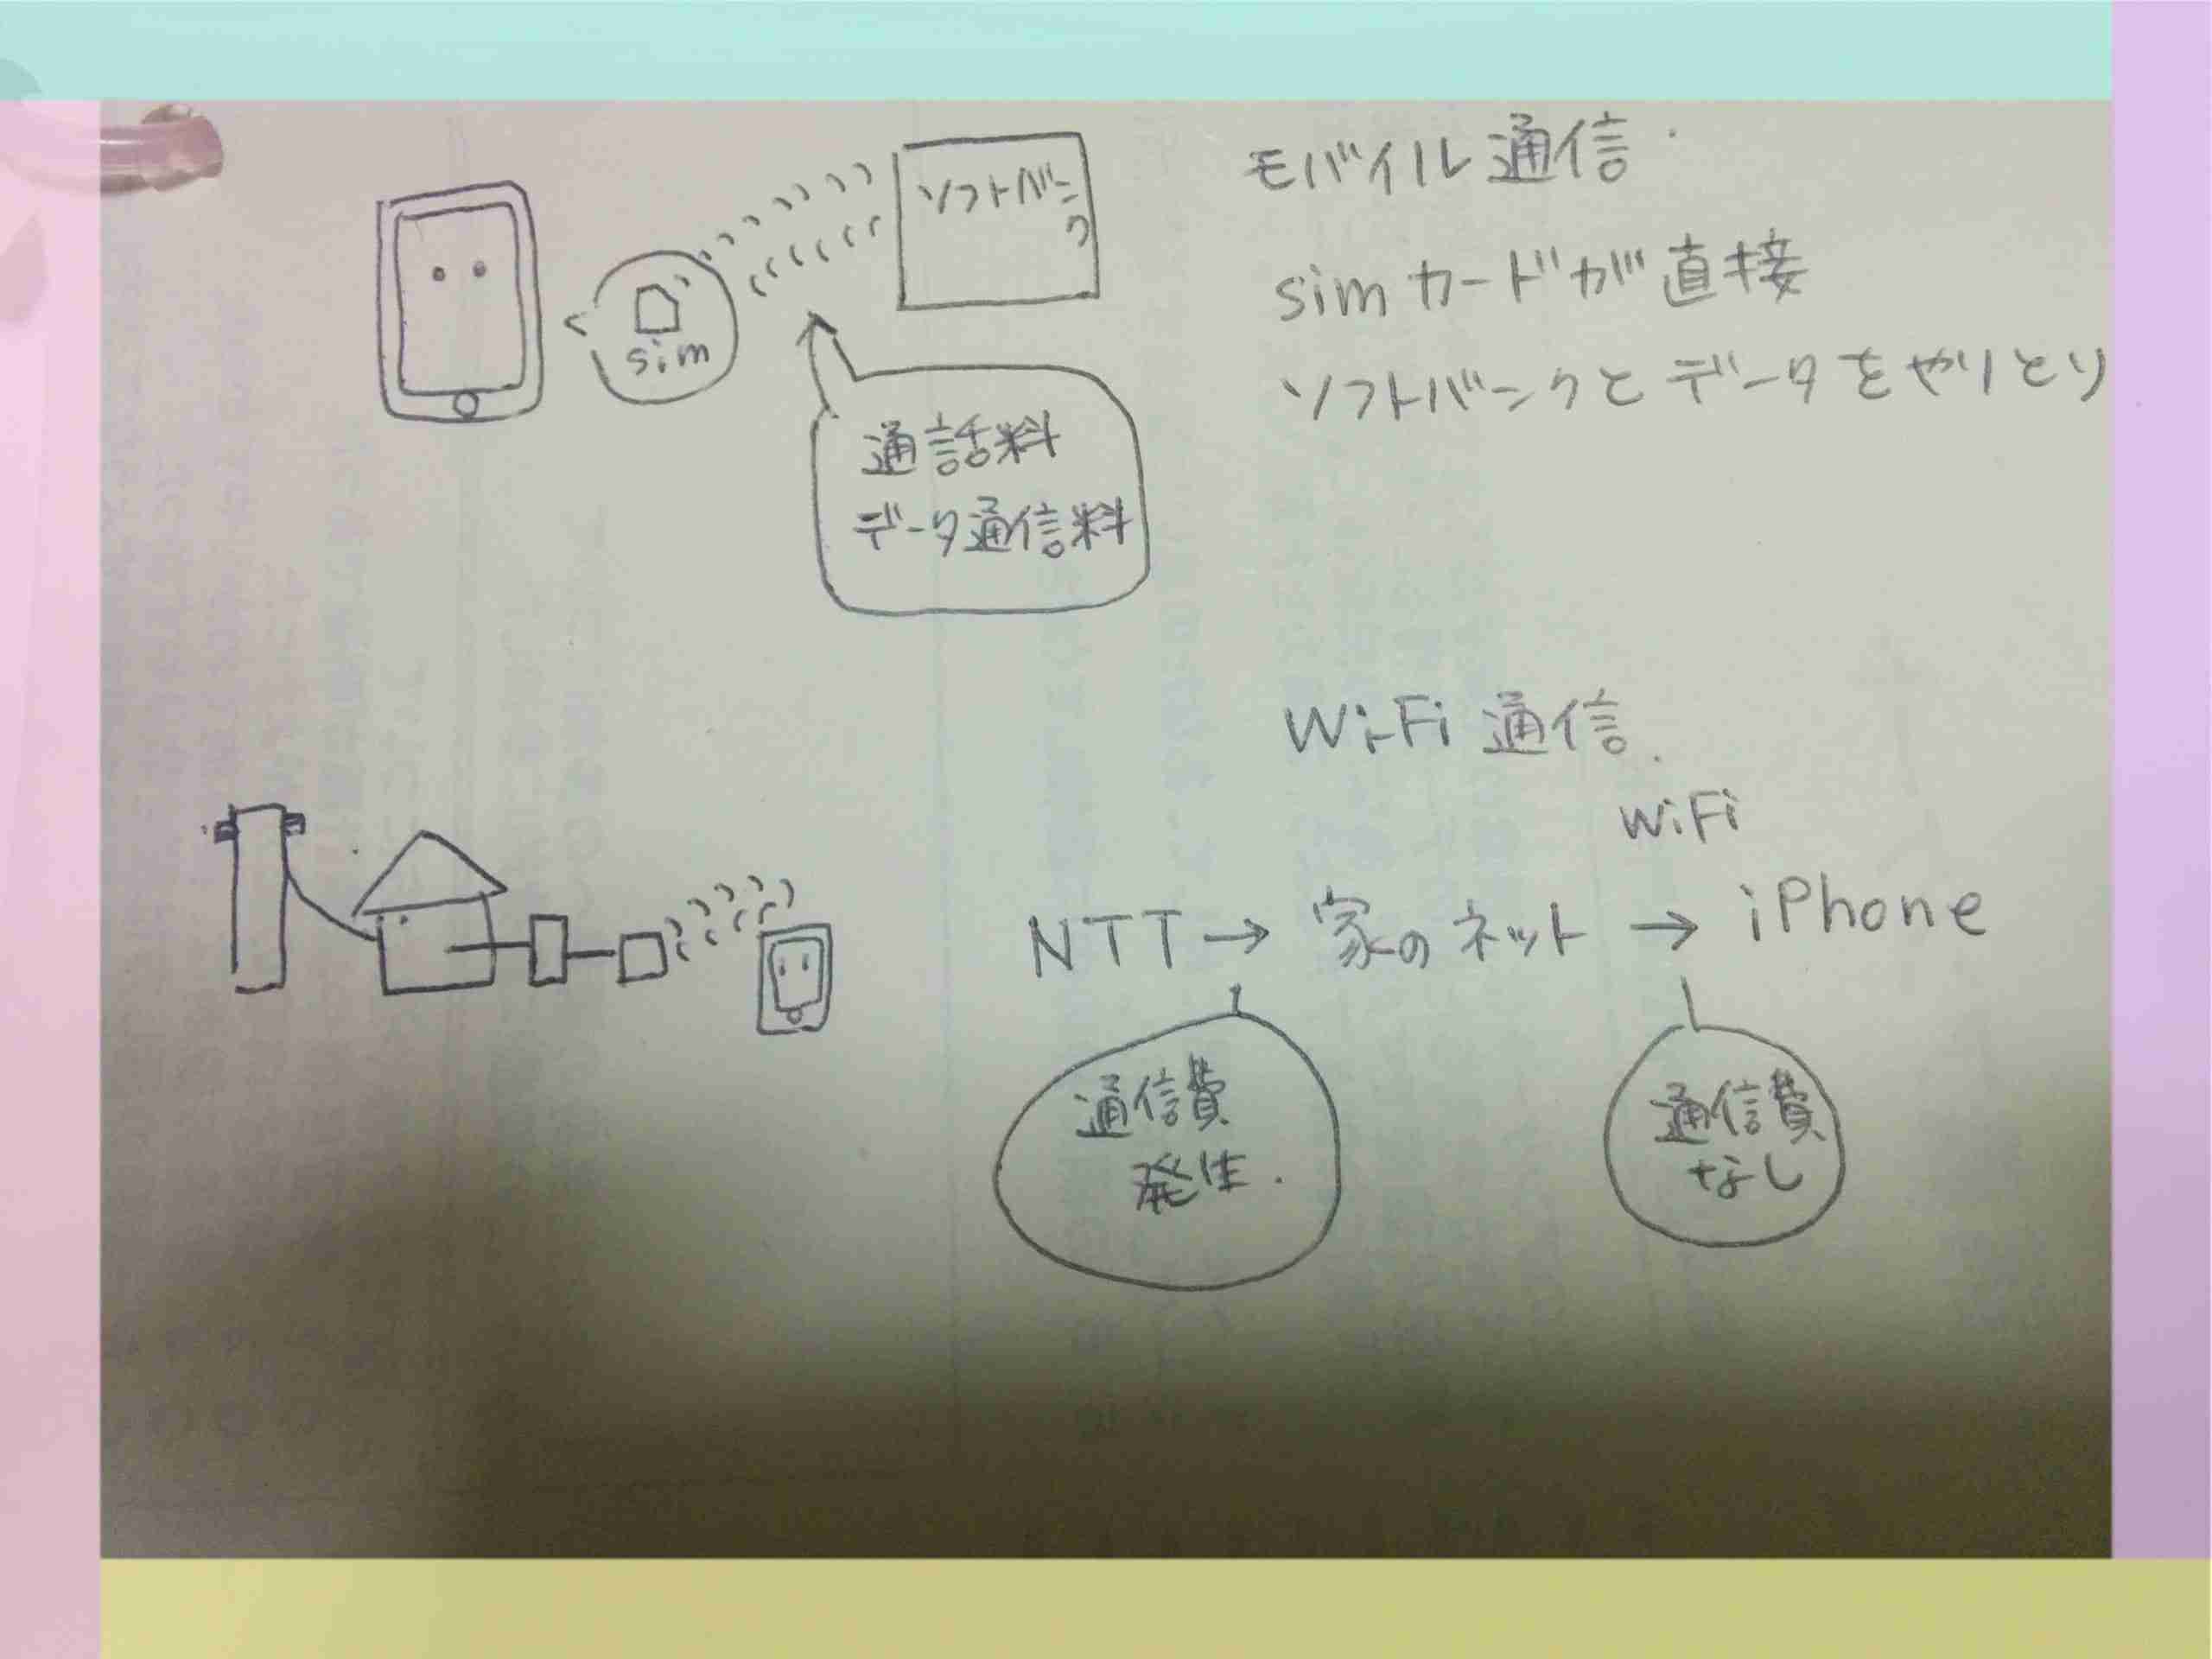 ソフトバンク
sim
通話料
データ通信料
モバイル通信
simカードが直接
ソフトバンクとデータをやりとり
WiFi通信.
WiFi
NTT→家のネット→iPhone
通信費
発生.
通信費
なし